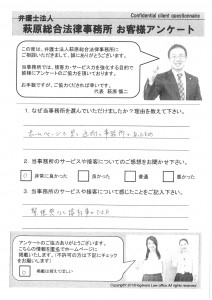 弁護士法人
Confidential client questionnaire
萩原総合法律事務所 お客様アンケート
この度は、弁護士法人萩原総合法律事務所に
ご相談いただきまして、誠にありがとうございます。
当事務所では、接客力・サービス力を強化する目的で
皆様にアンケートのご協力を頂いております。
お手数ですが、ご協力くだされば幸いです。
代表 萩原 慎二
1. なぜ当事務所を選んでいただけましたか？理由を教えて下さい。
2. 当事務所のサービスや接客についてのご感想をお聞かせ下さい。
非常に良かった
良かった
普通
悪かった
3. 当事務所のサービスや接客について感じたことをご記入下さい。
アンケートのご協力ありがとうございます。
こちらの情報を匿名でホームページに
掲載いたします。(不許可の方は下記にチェック
をお願いします)
掲載は控えてほしい